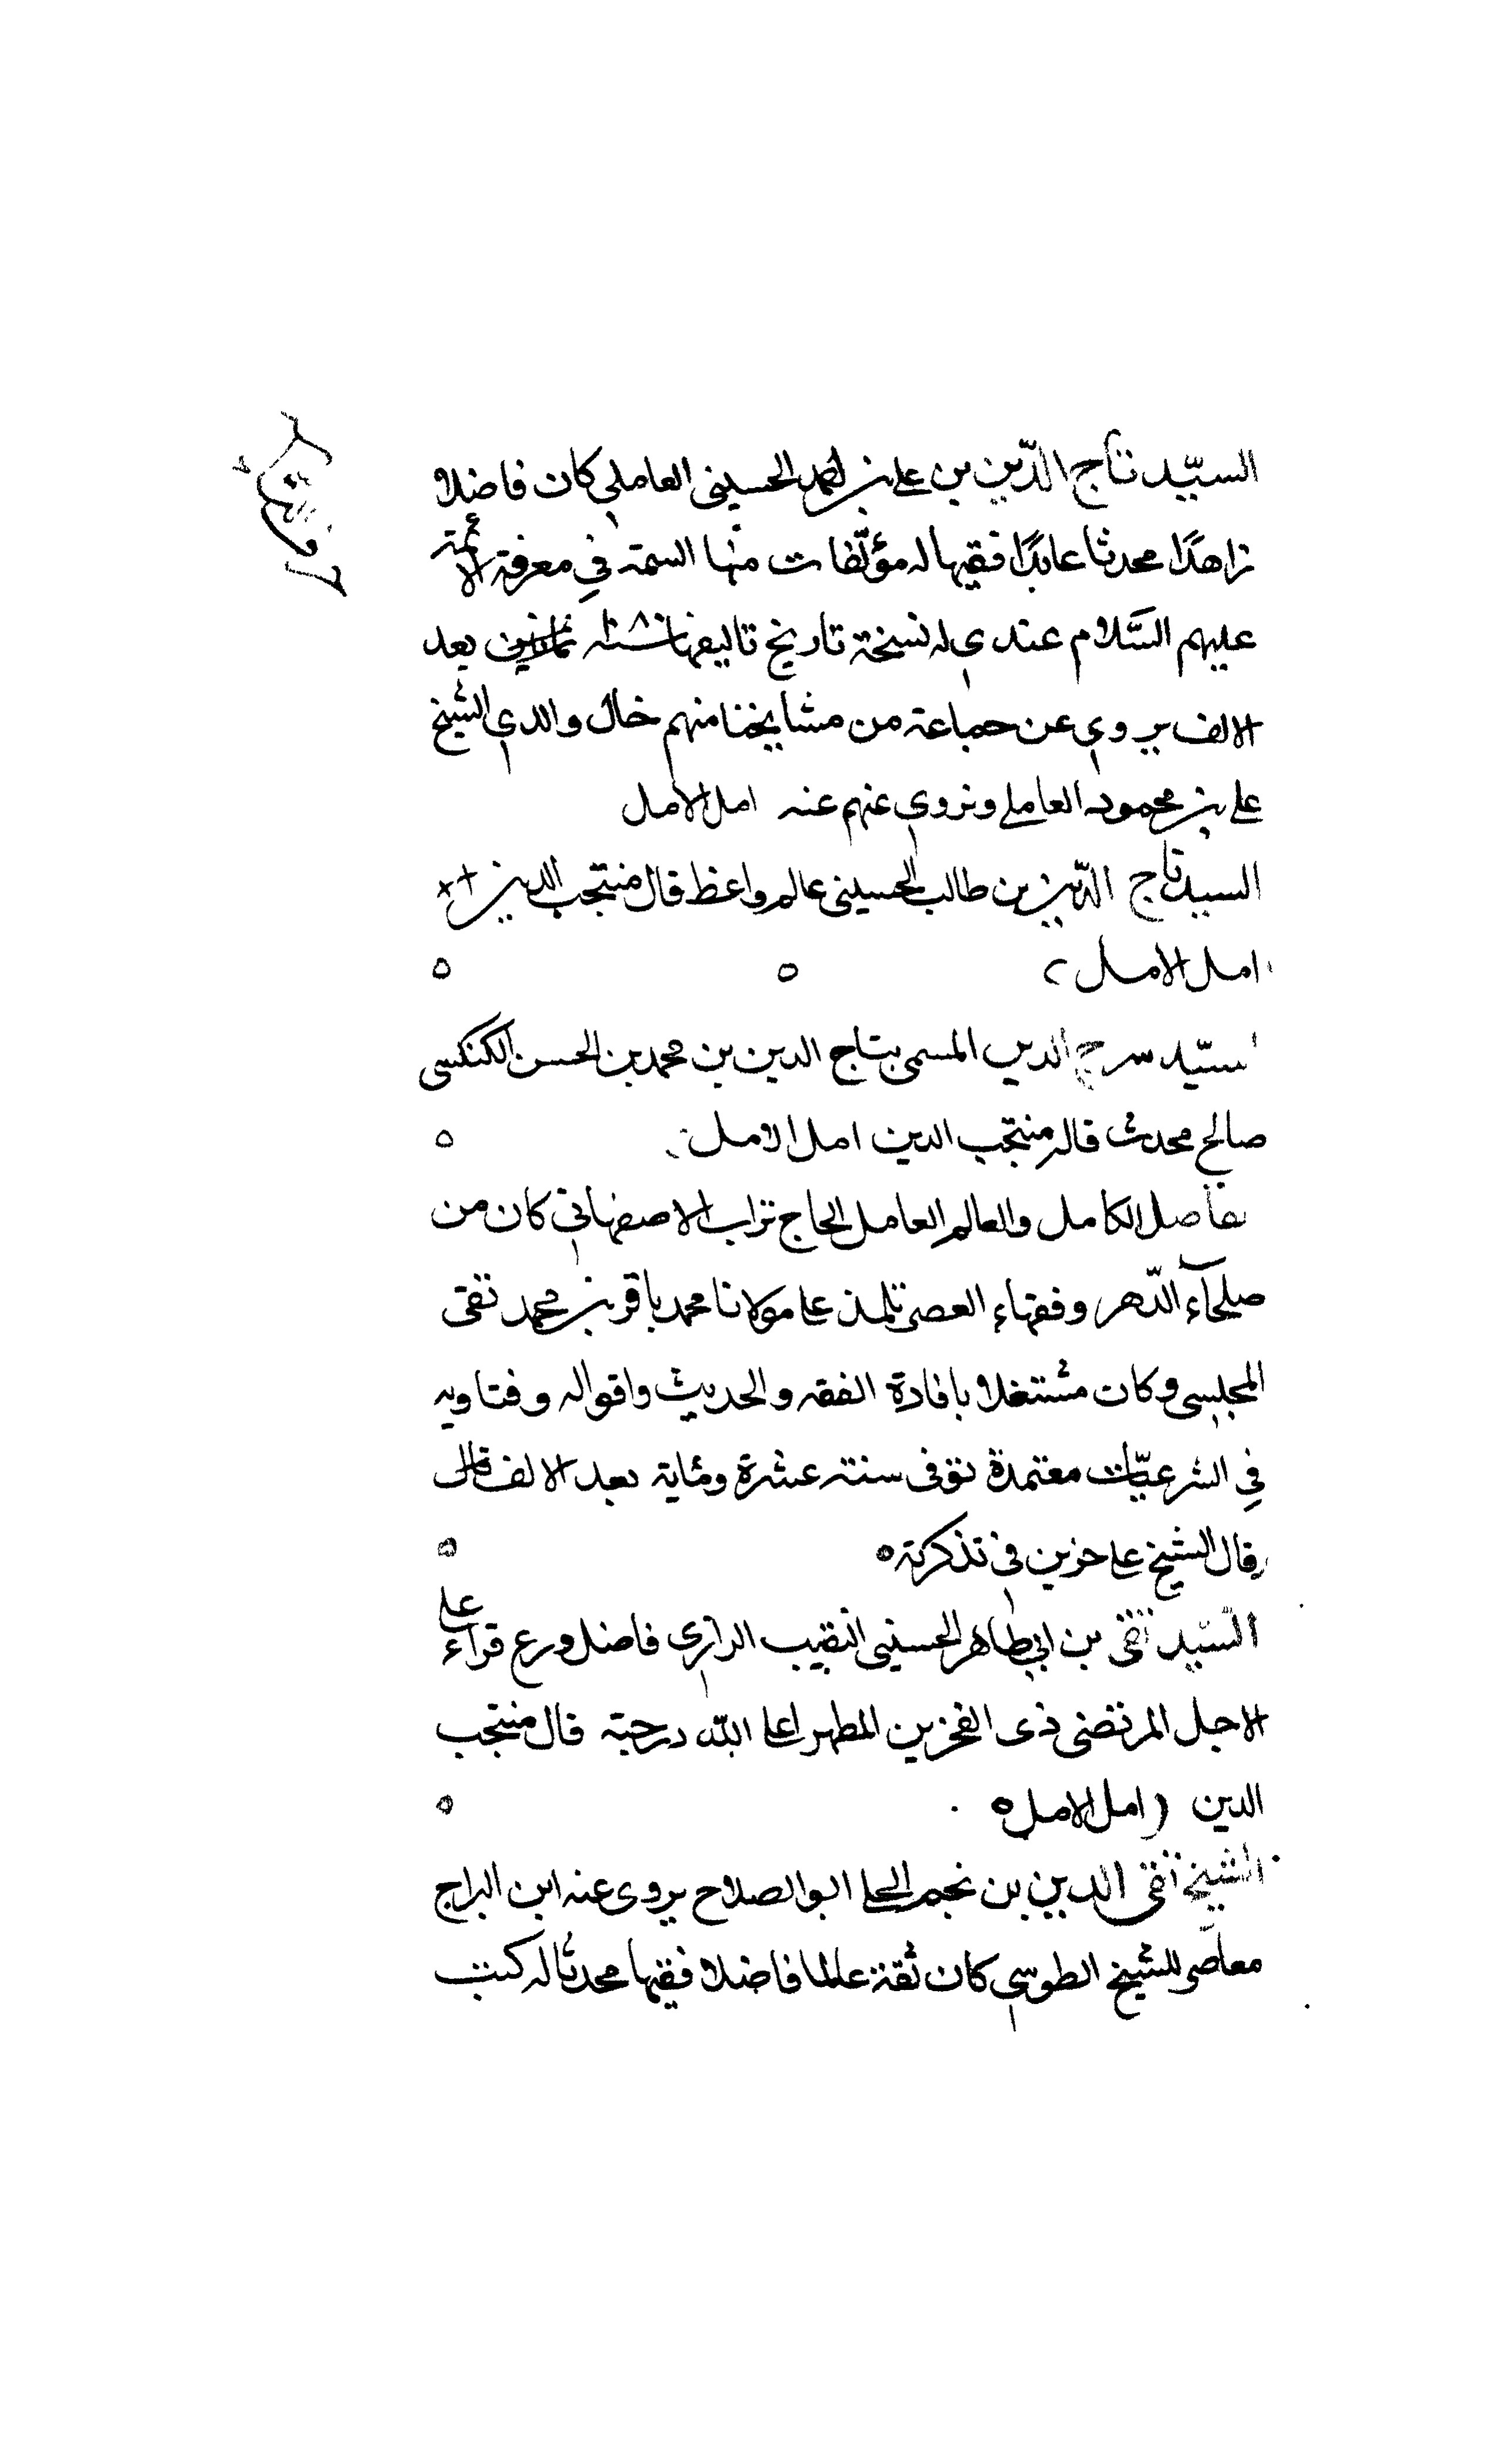 السيّد تاج الدّين بن علي بن احمد الحسيني العاملي كان فاضلا
زاهدًا محدثا عابدًا فقيها له مؤلّفات منها التتمة في معرفة الائمة
عليهم السّلام عندي له نسخة تاريخ تاليفها سنة ثمانين بعد
الالف يروي عن جماعة من مشايخنا منهم خال والدي الشيخ
علي بن محمود العاملي ونروي عنهم عنه امل الامل
السيد تاج الدّين بن طالب الحسيني عالم واعظ قال منتجب الدين
امل الامل
السيّد سرج الدين المسمى بتاج الدين بن محمد بن الحسن الكنكسى
صالح محدث قاله منتجب الدين امل الامل
الفاضل الكامل والعالم العامل الحاج تراب الاصفهاني كان من
صلحآء الدّهر وفقهاء العصر تلمذ على مولانا محمد باقر بن محمد تقى
المجلسى وكان مشتغلا بافادة الفقه والحديث واقواله وفتاويه
في الشرعيّات معتمدة توفى سنة عشرة ومائة بعد الالف
قال الشيخ على حزين فى تذكرته
السّيد تقى بن ابي طاهر الحسيني النقيب الرازى فاضل ورع قراء على
الاجل المرتضى ذى الفخرين المطهر اعلى اللّه درجته قال منتجب
الدين امل الامل
الشيخ تقى الدين بن نجم الحلى ابو الصلاح يروى عنه ابن البراج
معاصر للشيخ الطوسي كان ثقة عالما فاضلا فقيها محدثا له كتب